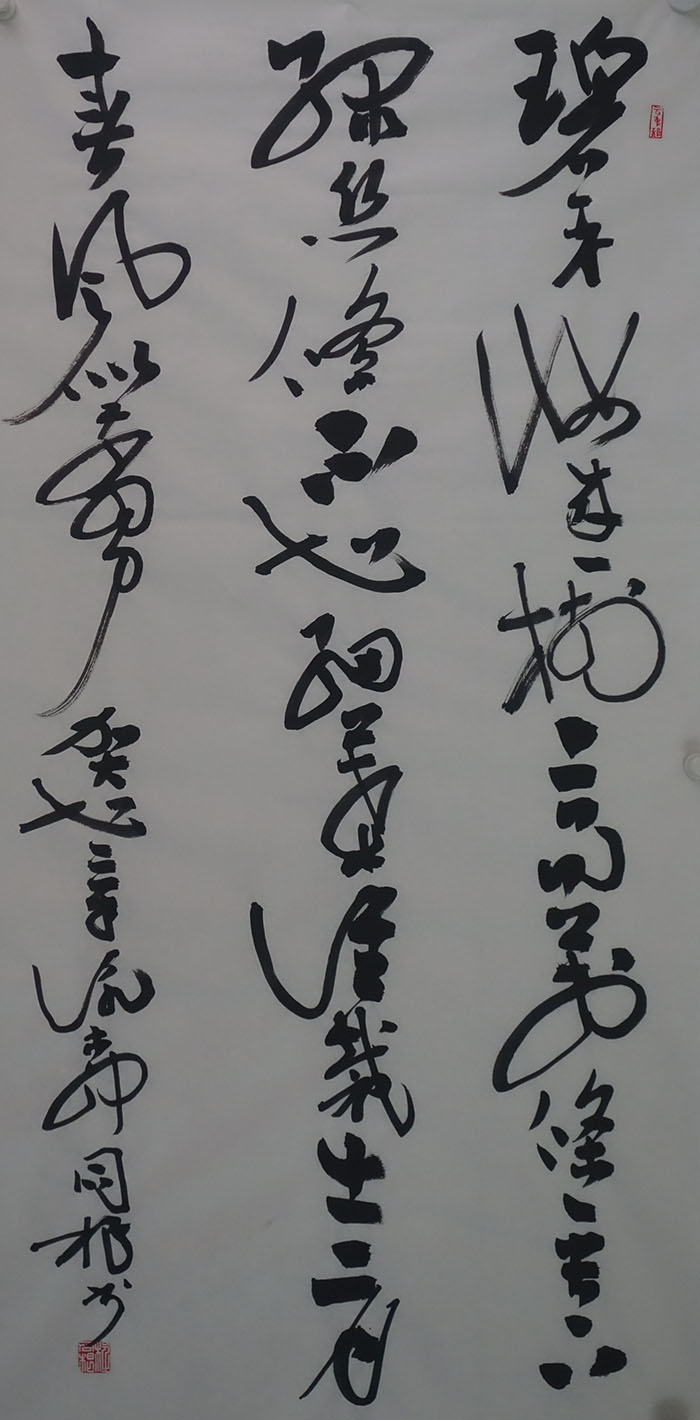 碧玉妆成一树高万条垂下
绿丝绦不知细叶谁裁出二月
春风似剪刀 贺知章咏柳 同根书